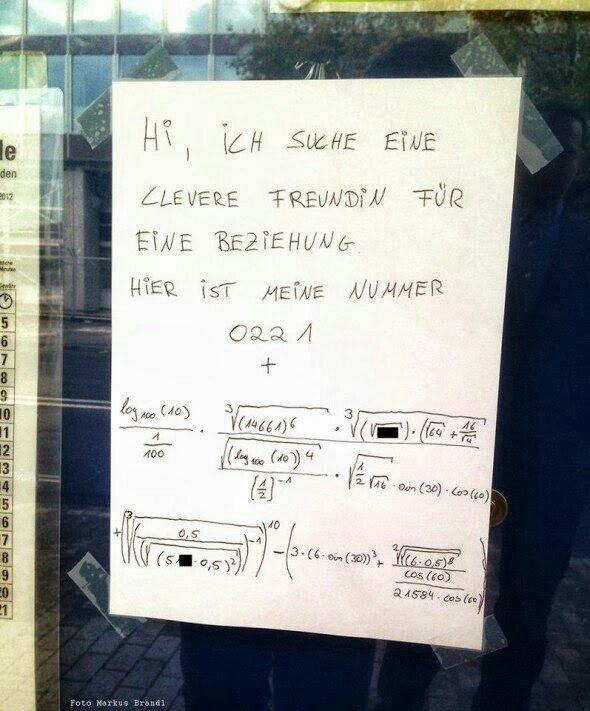 le
den
2012
5
6
7
8
9
10
11
12
13
14
15
16
17
18
19
20
21
Hi, ICH SUCHE EINE
CLEVERE FREUNDIN FÜR
EINE BEZIEHUNG.
HIER IST MEINE NUMMER
0221
+
log₁₀₀(10) / (1/100) · ³√(14661)⁶ · ³√((√) · (√64 + 16/√4))
√((log₁₀₀(10))⁴ / [1/2]⁻¹) · √(1/2 √16 · sin(30) · cos(60))
+ (³√((0,5 / (√(5 · 0,5)²))⁻¹))¹⁰ − (3 · (6 · sin(30))³ + ²√((6 · 0,5)⁸) / cos(60) / 21584 · cos(60))
Foto Markus Brandl